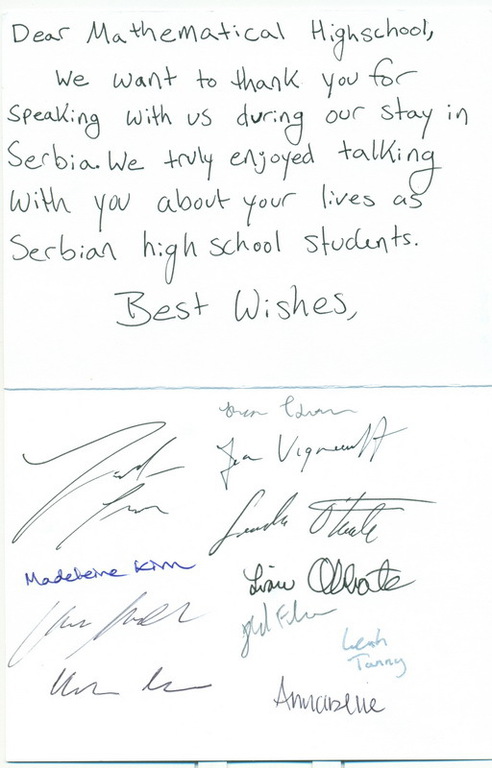 Dear Mathematical Highschool,
We want to thank you for
speaking with us during our stay in
Serbia. We truly enjoyed talking
with you about your lives as
Serbian high school students.
Best Wishes,
Madeleine Kim
Leah
Tanny
Annabelle